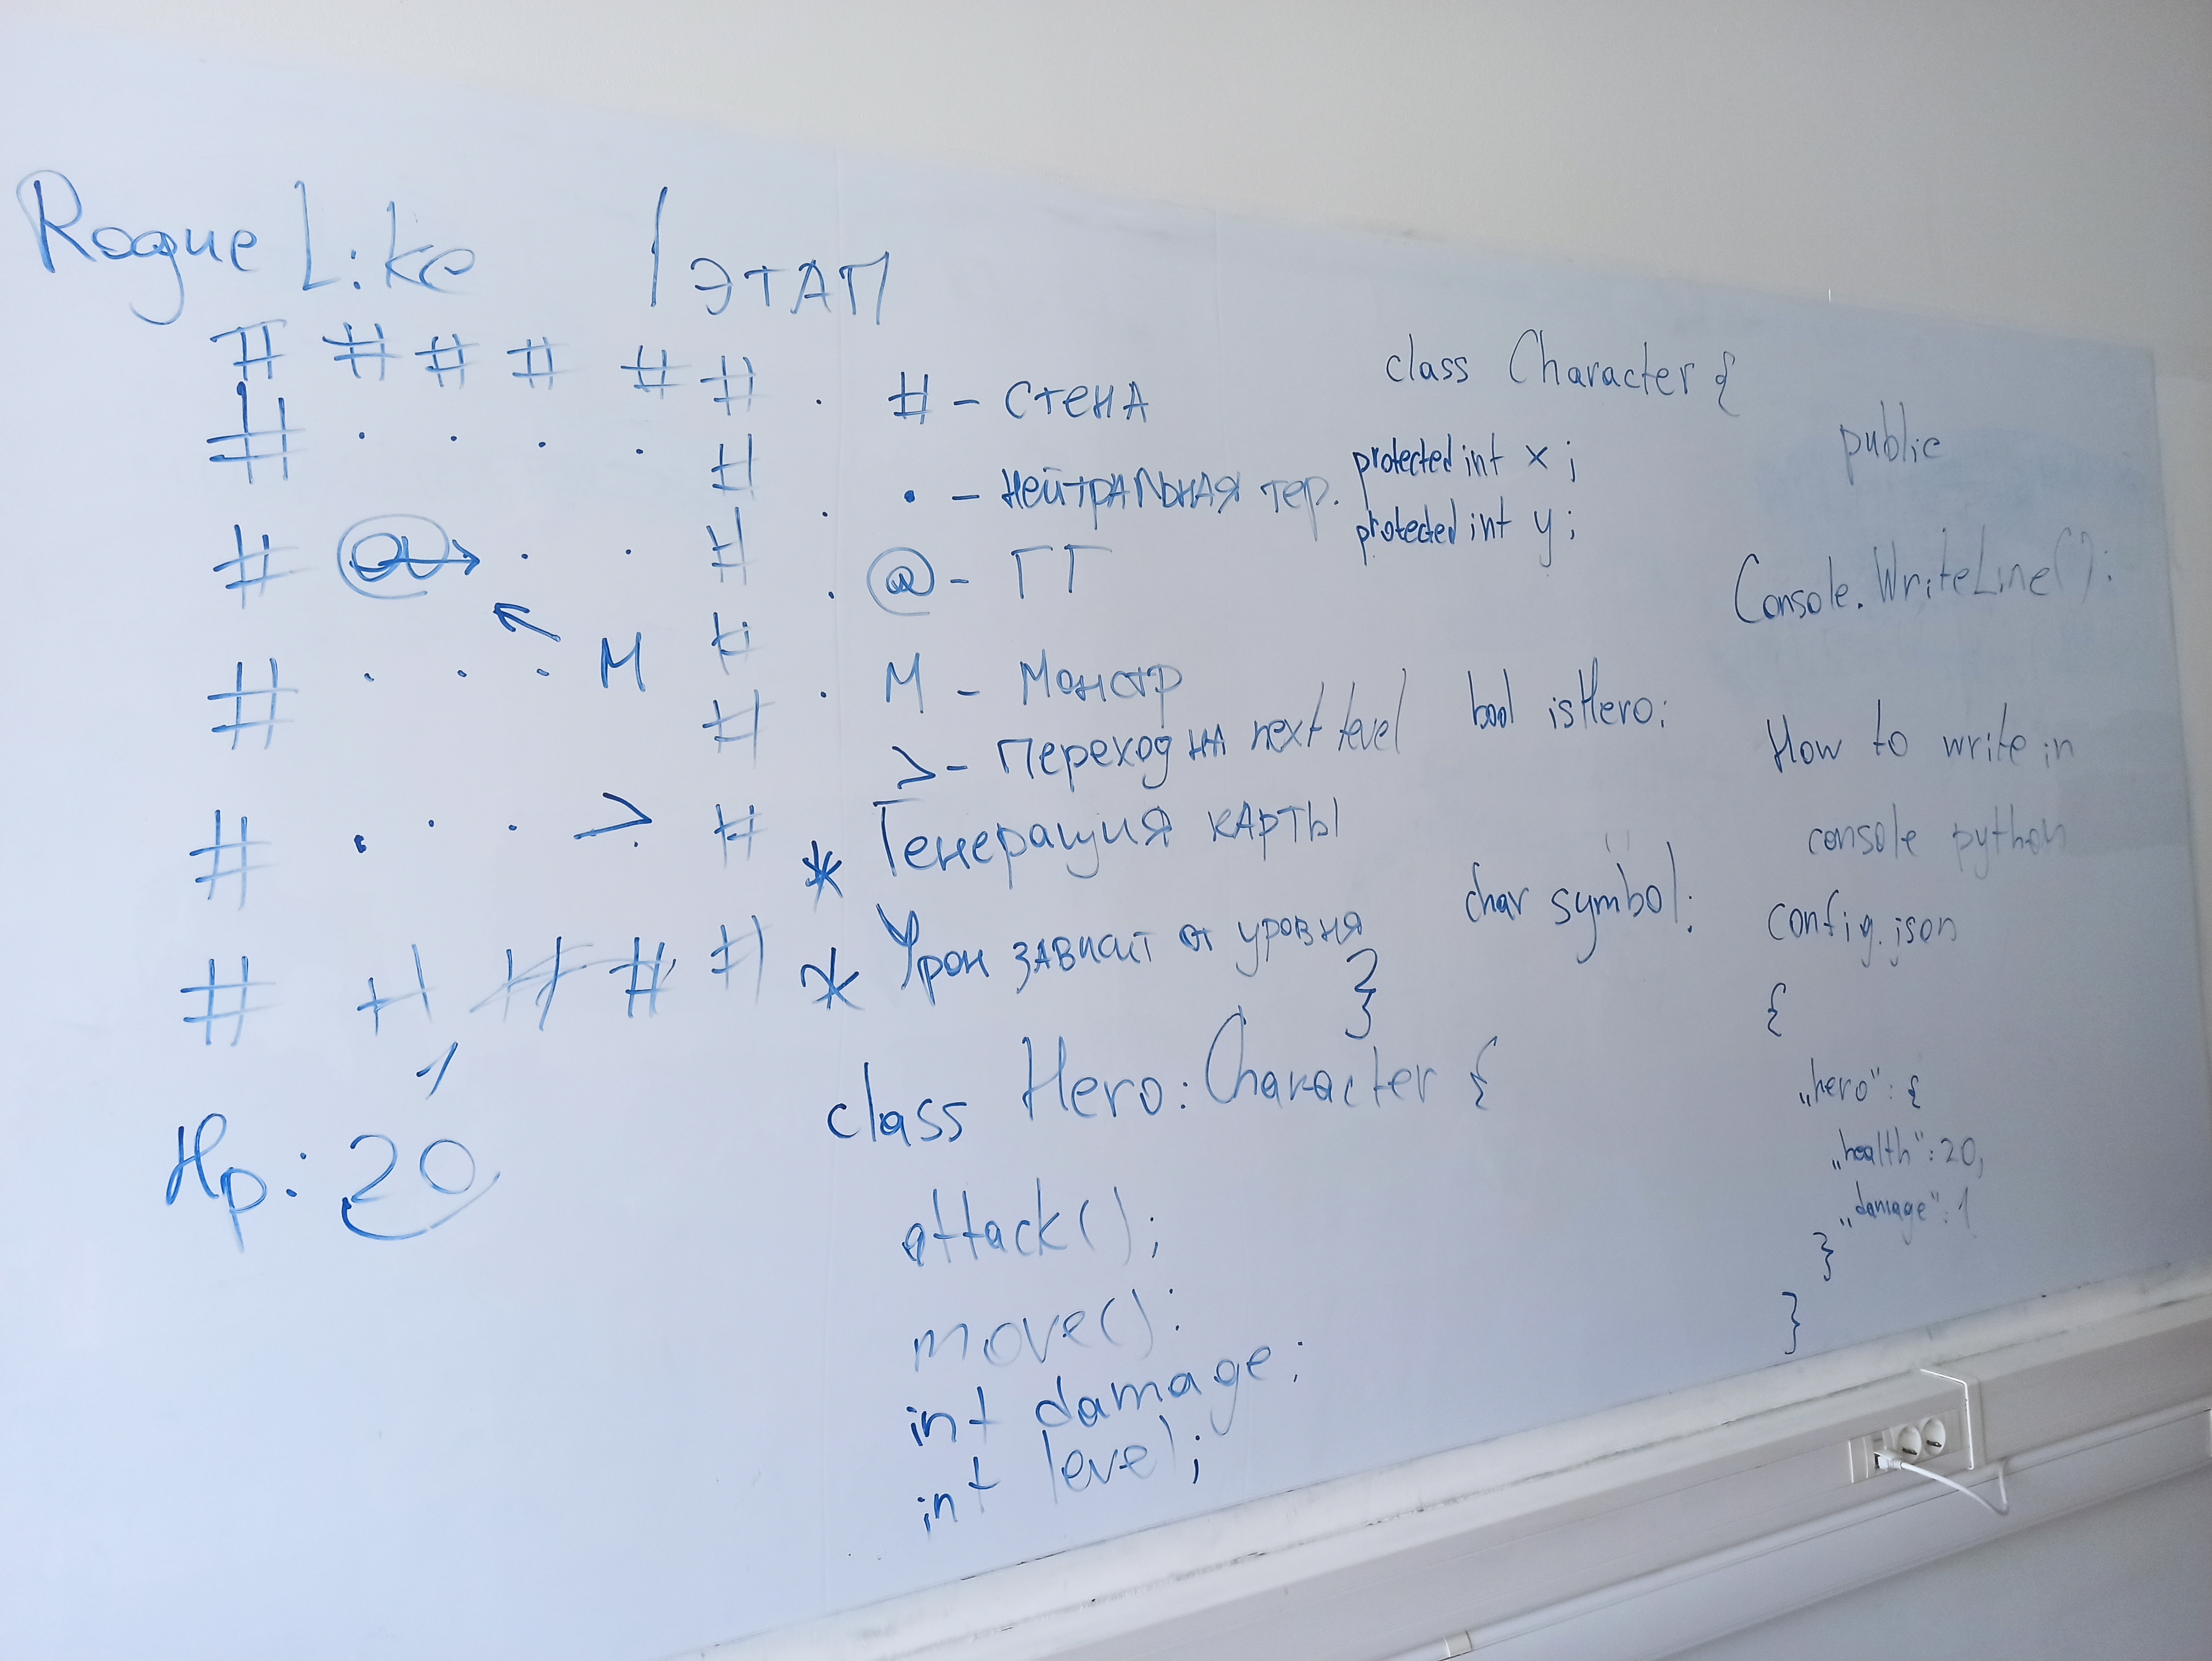 RogueLike 1 ЭТАП
# # # # # #
# . . . . #
# @ → . . #
# . . . M #
#
# . . . > #
# # # # #
1
Hp: 20
. # - Стена
. • - Нейтральная тер.
. @ - ГГ
. M - Монстр
> - Переход на next level
* Генерация карты
* Урон зависит от уровня
class Character {
protected int x;
protected int y;
bool isHero;
char symbol;
}
class Hero: Character {
attack();
move();
int damage;
int level;
public
Console.WriteLine();
How to write in
console python
config.json
{
„hero": {
„health": 20,
„damage": 1
}
}